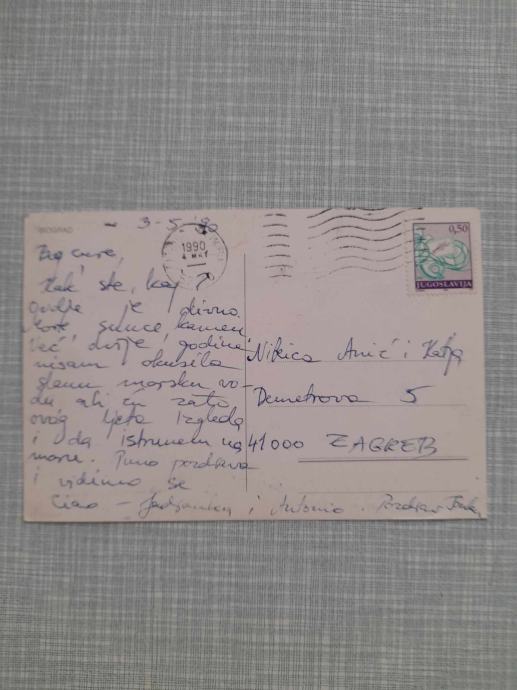 BIOGRAD
- 3-5-90
1990
4 MAY
0,50
JUGOSLAVIJA
Bog cure,
kak ste, kaj?
Ovdje je divno
more sunce, kamen
Već dvije godine
nisam okusila
slanu morsku vo-
du ali ću zato
ovog ljeta izgleda
i da istrunem na
more. Puno pozdrava
i vidimo se
Ciao - Jadranka i Antonio. Pozdrav
Nikica Anić i Katja
Demetrova 5
41000 ZAGREB